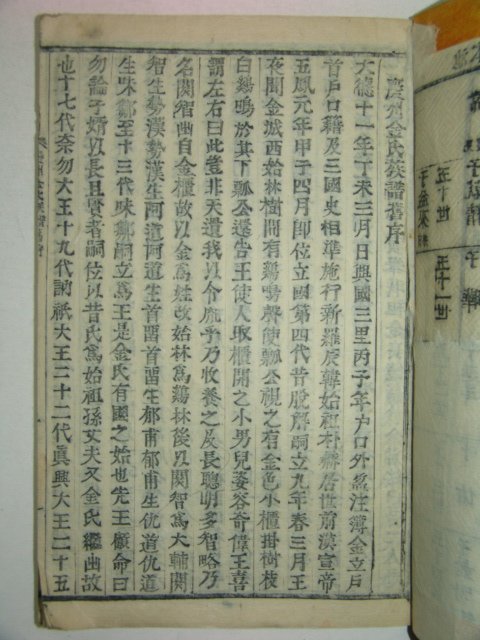 慶州金氏族譜舊序
大德十一年丁未三月日興國三里丙子年戶口外盈注簿金立戶
首戶口籍及三國史相準施行新羅辰韓始祖朴赫居世前漢宣帝
五鳳元年甲子四月即位立國第四代昔脫解嗣立九年春三月王
夜聞金城西始林樹間有鷄鳴聲使瓢公視之有金色小櫃掛樹枝
白鷄鳴於其下瓢公還告王使人取櫃開之小男兒姿容奇偉王喜
謂左右曰此豈非天遺我以令胤乎乃收養之及長聰明多智略乃
名閼智幽自金櫃故以金爲姓改始林爲鷄林後以閼智爲大輔閼
智生勢漢勢漢生阿道阿道生首留首留生郁甫郁甫生仇道仇道
生味鄒至十三代味鄒嗣立爲王是金氏有國之始也先王顧命曰
勿論子婿以長且賢者嗣位以昔氏爲始祖孫丈夫又金氏繼幽故
也十七代奈勿大王十九代訥祇大王二十二代眞興大王二十五
五十世
五十一世